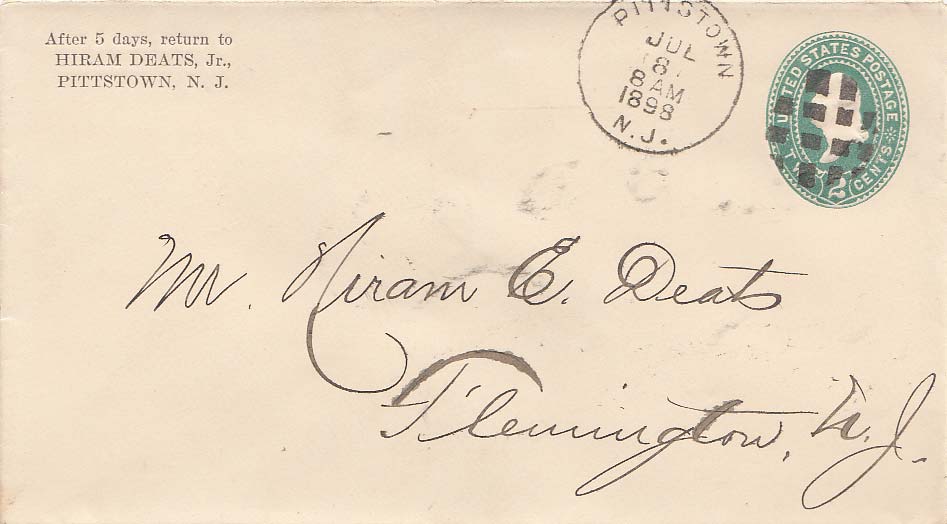 After 5 days, return to
HIRAM DEATS, Jr.,
PITTSTOWN, N. J.
PITTSTOWN
JUL
8
8 AM
1898
N.J.
UNITED STATES POSTAGE
TWO CENTS
2
Mr. Hiram E. Deats
Flemington, N. J.